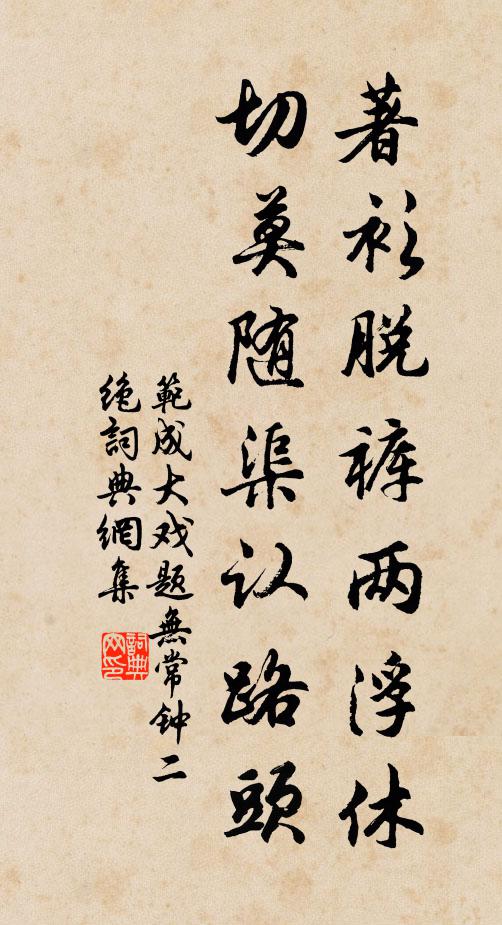 著衫脱裤两浮休
切莫随渠认路頭
範成大戏题無常钟二
绝詞典網集
詞典網印